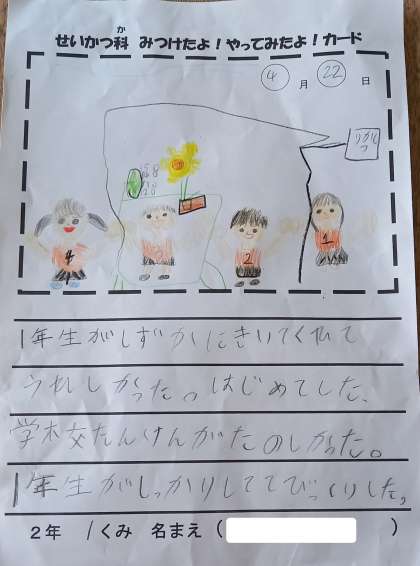 せいかつ科 みつけたよ！やってみたよ！カード
か
4 月 22 日
りかしつ
4
3
2
1
1年生がしずかにきいてくれて
うれしかった。はじめてした、
学木交たんけんがたのしかった。
1年生がしっかりしててびっくりした。
2年 1くみ 名まえ（ ）